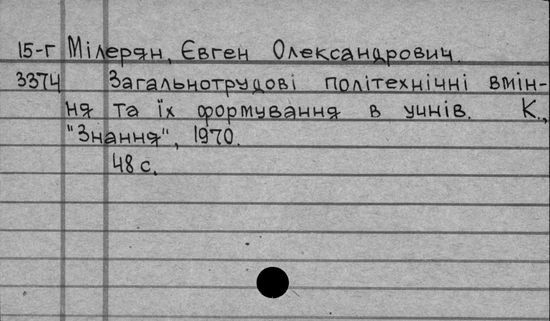 15-г Мілерян, Євген Олександрович.
3374 Загальнотрудові політехнічні вмін-
ня та їх формування в учнів. К.,
"Знання", 1970.
48 с.